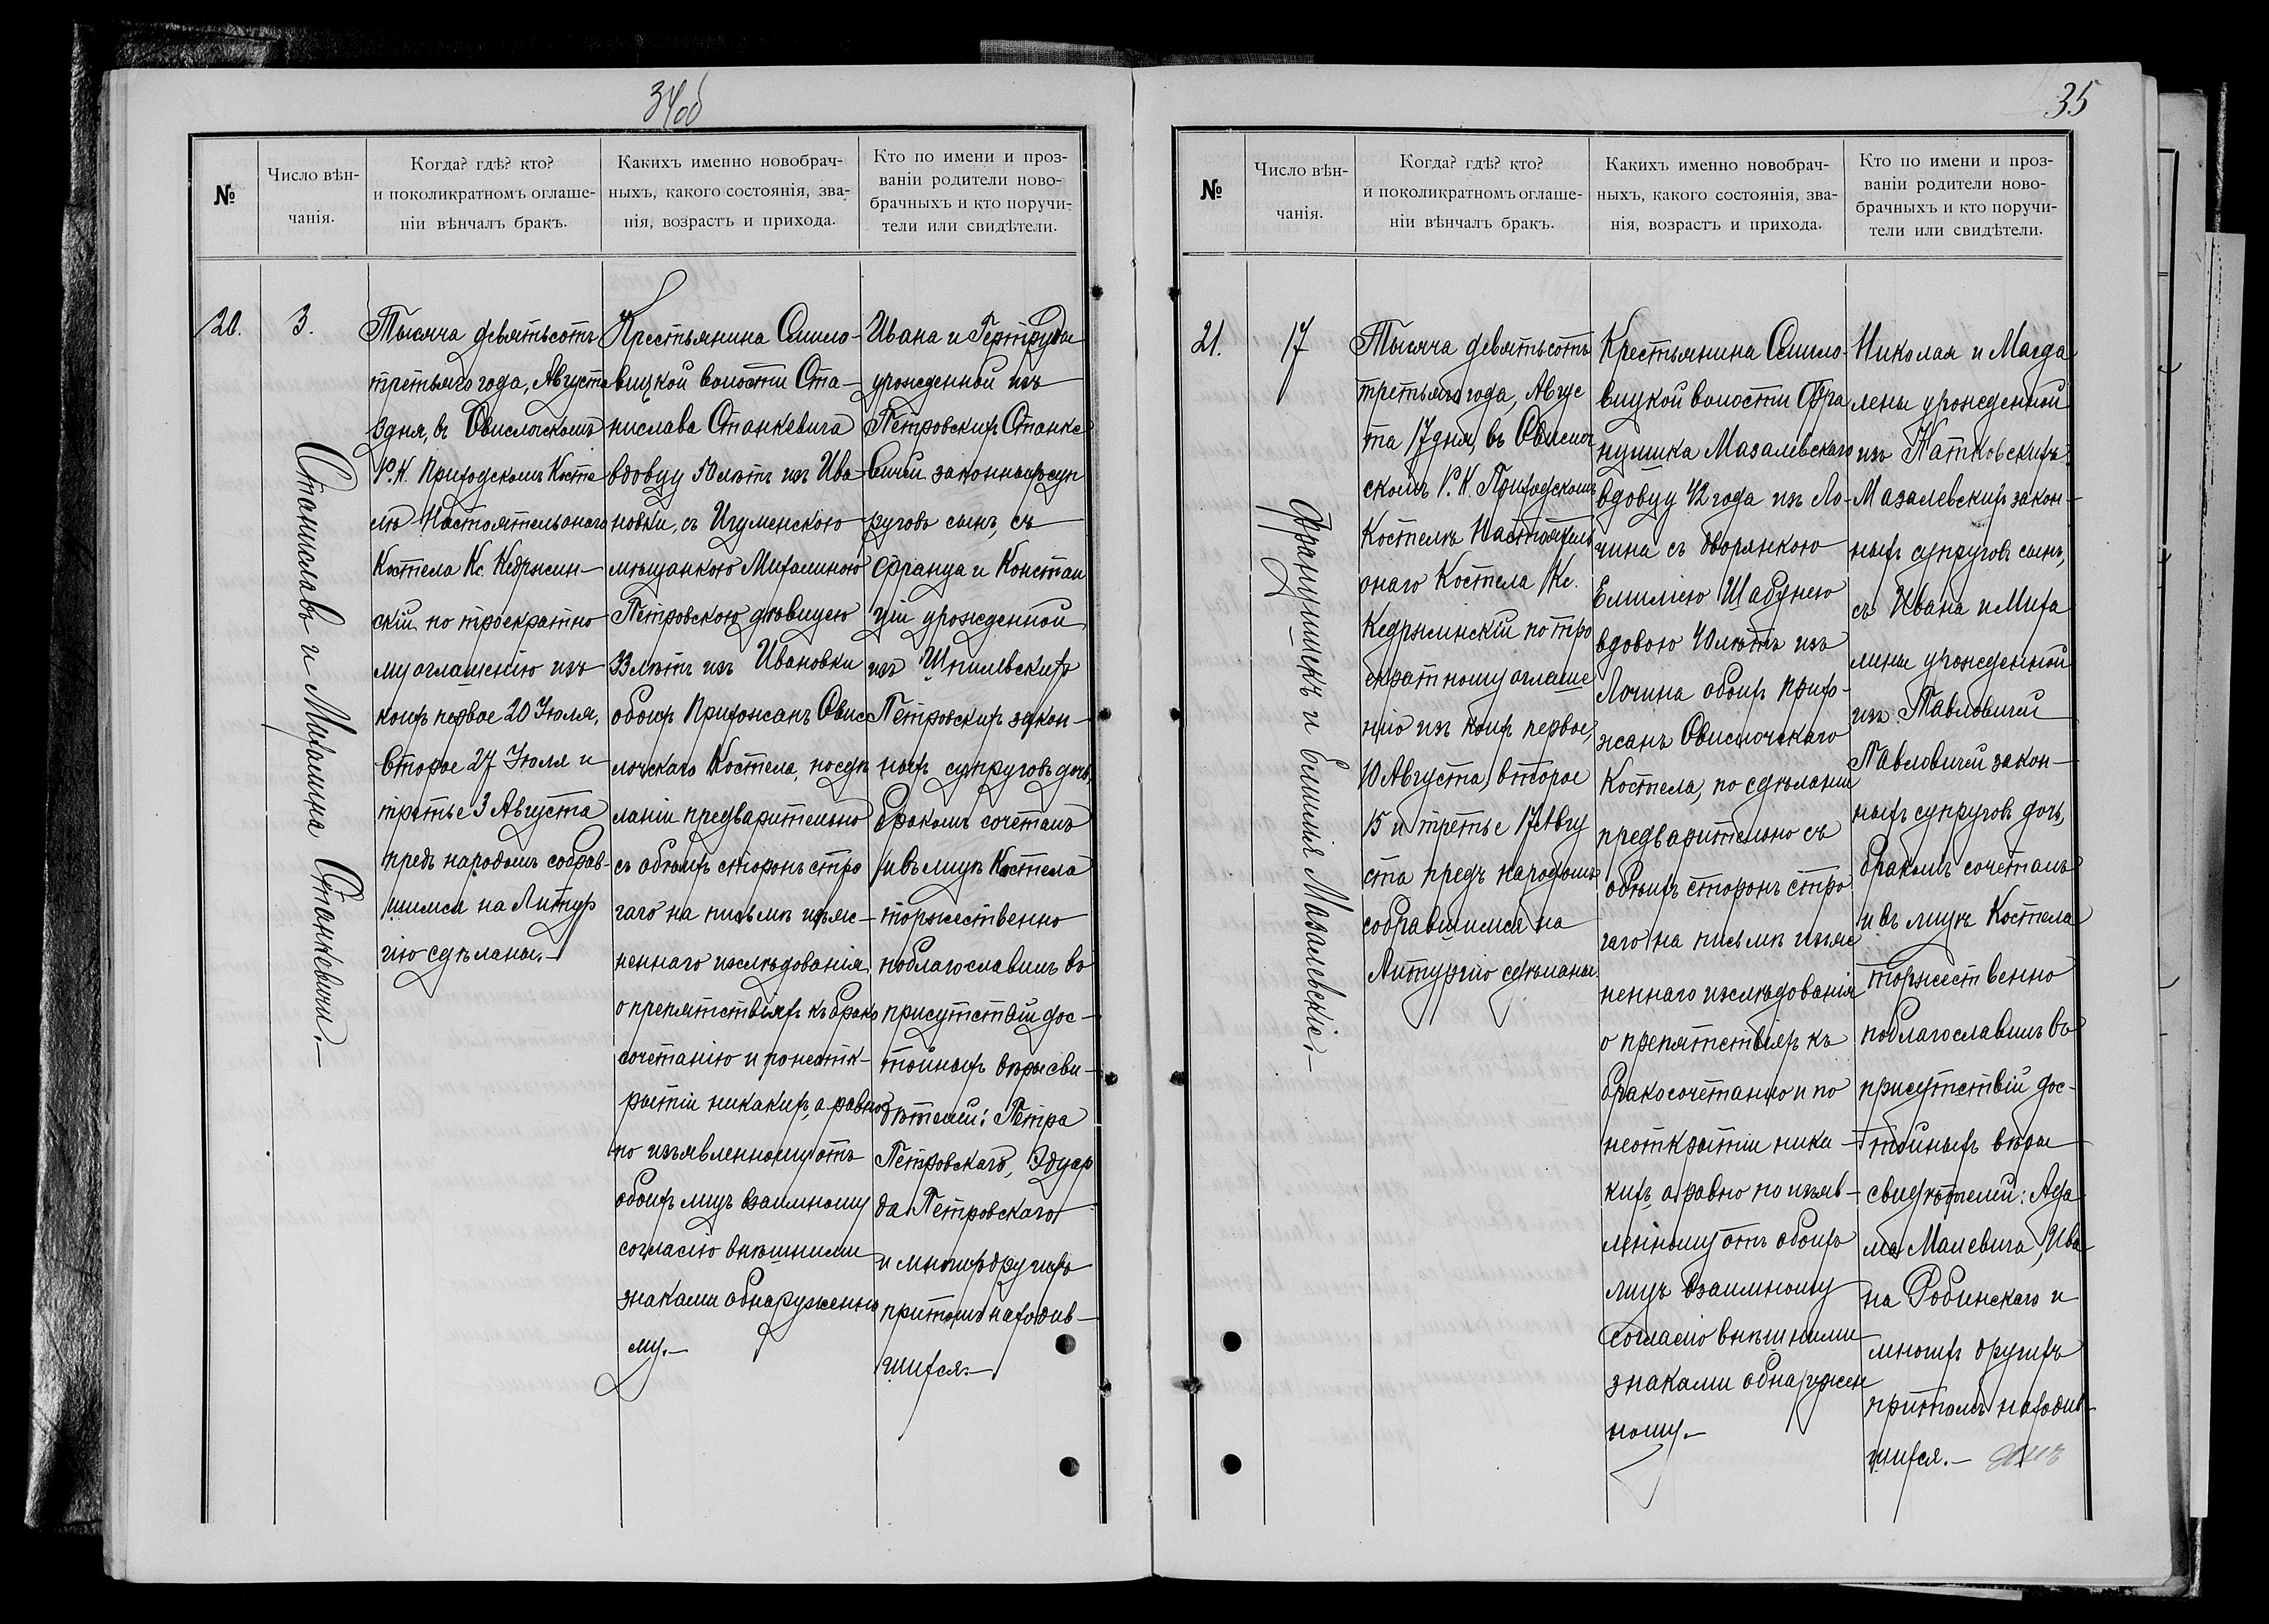 34об
№
Число вѣн-
чанія.
Когда? гдѣ? кто?
и поколикратномъ оглаше-
ніи вѣнчалъ бракъ.
Какихъ именно новобрач-
ныхъ, какого состоянія, зва-
нія, возрастъ и прихода.
Кто по имени и проз-
ваніи родители ново-
брачныхъ и кто поручи-
тели или свидѣтели.
20.
3.
Станиславъ и Михалина Станкевичи.—
Тысяча девятьсотъ
третьяго года, Августа
3 дня, въ Свислочскомъ
Р. К. Приходскомъ Косте
лѣ Настоятель онаго
Костела Кс. Кедржин-
скій по троекратно
му оглашенію изъ
коихъ первое 20 Іюля,
второе 27 Іюля и
третье 3 Августа
предъ народомъ собрав-
шимся на Литур
гію сдѣланы.—
Крестьянина Омило-
вицкой волости Ста-
нислава Станкевича
вдовца 50 лѣтъ изъ Ива-
новки, съ Игуменскою
мѣщанкою Михалиною
Петровскою дѣвицею
33 лѣтъ изъ Ивановки
обоихъ Прихожанъ Свис
лочскаго Костела, по сдѣ
ланіи предварительно
съ обѣихъ сторонъ стро
гаго на письмѣ изъяс-
неннаго изслѣдованія
о препятствіяхъ къ брако
сочетанію и по неотк-
рытіи никакихъ, а равно
по изъявленному отъ
обоихъ лицъ взаимному
согласію внѣшними
знаками обнаруженно
му.—
Ивана и Гертруды
урожденной изъ
Петровскихъ Станке
вичей законныхъ суп
руговъ сынъ, съ
Франца и Констан
ціи урожденной
изъ Шпилевскихъ
Петровскихъ закон-
ныхъ супруговъ дочь,
бракомъ сочеталъ
и въ лицѣ Костела
торжественно
поблагославилъ въ
присутствіи дос-
тойныхъ вѣры сви-
дѣтелей: Петра
Петровскаго, Эдуар
да Петровскаго
и многихъ другихъ
притомъ находив-
шихся.—
35
№
Число вѣн-
чанія.
Когда? гдѣ? кто?
и поколикратномъ оглаше-
ніи вѣнчалъ бракъ.
Какихъ именно новобрач-
ныхъ, какого состоянія, зва-
нія, возрастъ и прихода.
Кто по имени и проз-
ваніи родители ново-
брачныхъ и кто поручи-
тели или свидѣтели.
21.
17
Францишекъ и Емилія Мазалевскіе.—
Тысяча девятьсотъ
третьяго года, Авгус
та 17 дня, въ Свислоч
скомъ Р. К. Приходскомъ
Костелѣ Настоятель
онаго Костела Кс.
Кедржинскій по тро
екратному оглаше
нію изъ коихъ первое,
10 Августа, второе
15 и третье 17 Авгу
ста предъ народомъ
собравшимся на
Литургію сдѣланы.
Крестьянина Омило-
вицкой волости Фра
нцишка Мазалевскаго
вдовца 42 года изъ Ло-
чина съ дворянкою
Емиліею Шабунею
вдовою 40 лѣтъ изъ
Лочина обоихъ прихо-
жанъ Свислочскаго
Костела, по сдѣланіи
предварительно съ
обѣихъ сторонъ стро
гаго на письмѣ изъяс
неннаго изслѣдованія
о препятствіяхъ къ
бракосочетанію и по
неоткрытіи ника-
кихъ, а равно по изъяв-
ленному отъ обоихъ
лицъ взаимному
согласію внѣшними
знаками обнаружен
ному.—
Николая и Магда
лены урожденной
изъ Натковскихъ
Мазалевскихъ закон-
ныхъ супруговъ сынъ,
съ Ивана и Миха
лины урожденной
изъ Павловичей
Павловичей закон-
ныхъ супруговъ дочь,
бракомъ сочеталъ
и въ лицѣ Костела
торжественно
поблагославилъ въ
присутствіи дос-
тойныхъ вѣры
свидѣтелей: Ада
ма Малевича, Ива
на Робинскаго и
многихъ другихъ
притомъ находив-
шихся.—